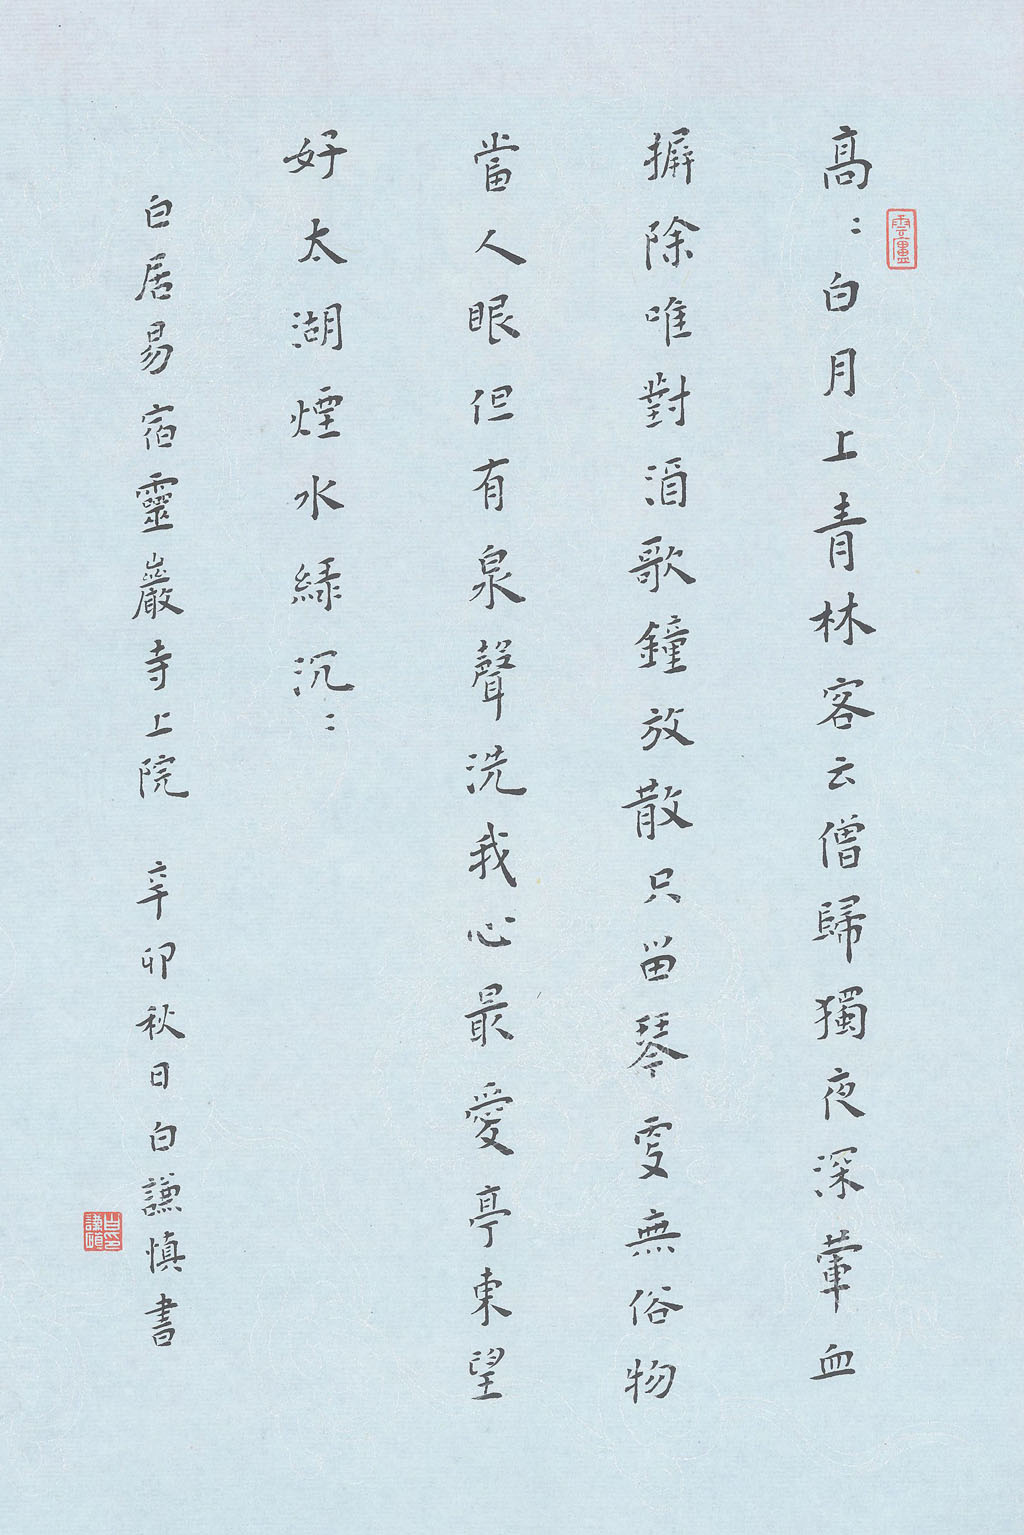 雲廬
高〻白月上青林客云僧歸獨夜深葷血
摒除唯對酒歌鐘放散只留琴更無俗物
當人眼但有泉聲洗我心最愛亭東望
好太湖煙水綠沉〻
白居易宿靈巖寺上院 辛卯秋日白謙慎書
白謙慎印